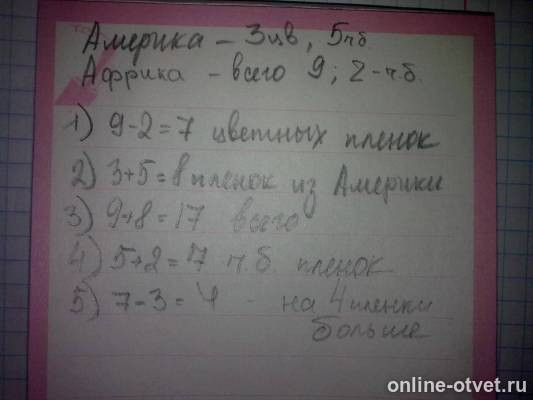 Америка – 3цв, 5чб
Африка – всего 9; 2-ч.б.
1) 9-2=7 цветных пленок
2) 3+5=8 пленок из Америки
3) 9+8=17 всего
4) 5+2=7 ч.б. пленок
5) 7-3=4 - на 4 пленки
больше
online-otvet.ru